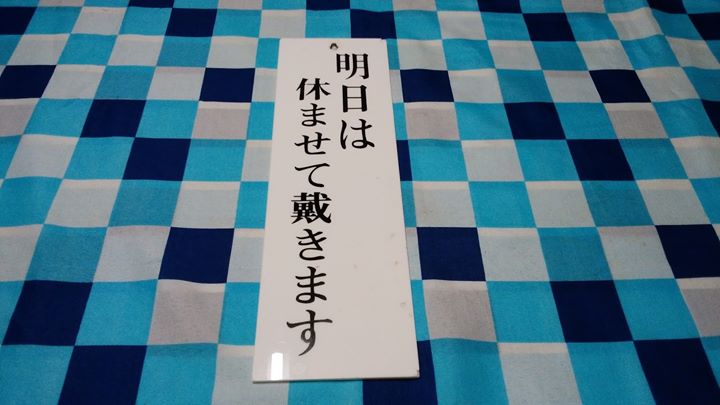 明日は
休ませて戴きます